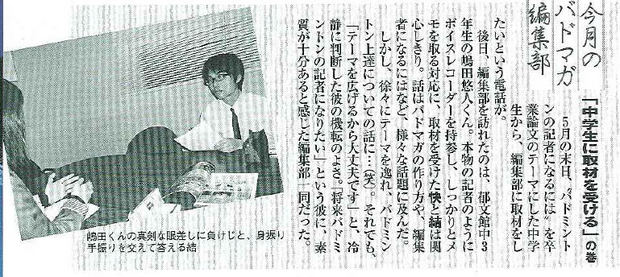 今月の
バドマガ
編集部
「中学生に取材を受ける」の巻
5月の末日、“バドミント
ンの記者になるには”を卒
業論文のテーマにした中学
生から、編集部に取材をし
たいという電話が。
後日、編集部を訪れたのは、郁文館中3
年生の嶋田悠人くん。本物の記者のように
ボイスレコーダーを持参し、しっかりとメ
モを取る対応に、取材を受けた快と結は関
心しきり。話はバドマガの作り方や、編集
者になるにはなど、様々な話題に及んだ。
しかし、徐々にテーマを逸れ、バドミン
トン上達についての話に…(笑)。それでも、
「テーマを広げるから大丈夫です」と、冷
静に判断した彼の機転のよさ。「将来バドミ
ントンの記者になりたい」という彼に、素
質が十分あると感じた編集部一同だった。
嶋田くんの真剣な眼差しに負けじと、身振り
手振りを交えて答える結